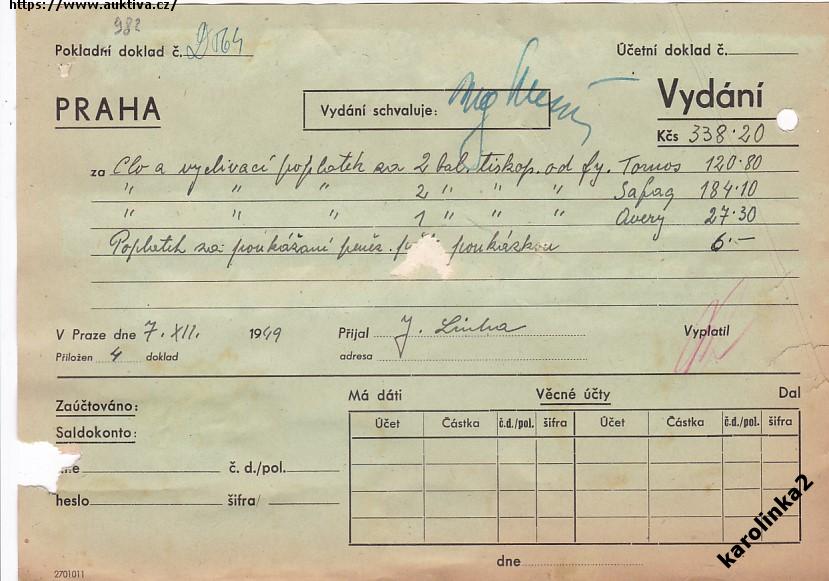 https://www.auktiva.cz/
982
Pokladní doklad č. 2064 Účetní doklad č.
PRAHA Vydání schvaluje: Ing Vydání
Kčs 338·20
za Clo a vyclivací poplatek za 2 bal. tiskop. od fy. Tornos 120·80
" " " 2 " " " Safag 184·10
" " " 1 " " " Avery 27·30
Poplatek za poukázání peněz. poukázkou 6·-
V Praze dne 7. XII. 1949 Přijal J. Linha Vyplatil
Přiložen 4 doklad adresa
Má dáti Věcné účty Dal
Zaúčtováno: Účet Částka č.d./pol. šifra Účet Částka č.d./pol. šifra
Saldokonto:
č. d./pol.
heslo šifra/
dne
2701011
karolinka2